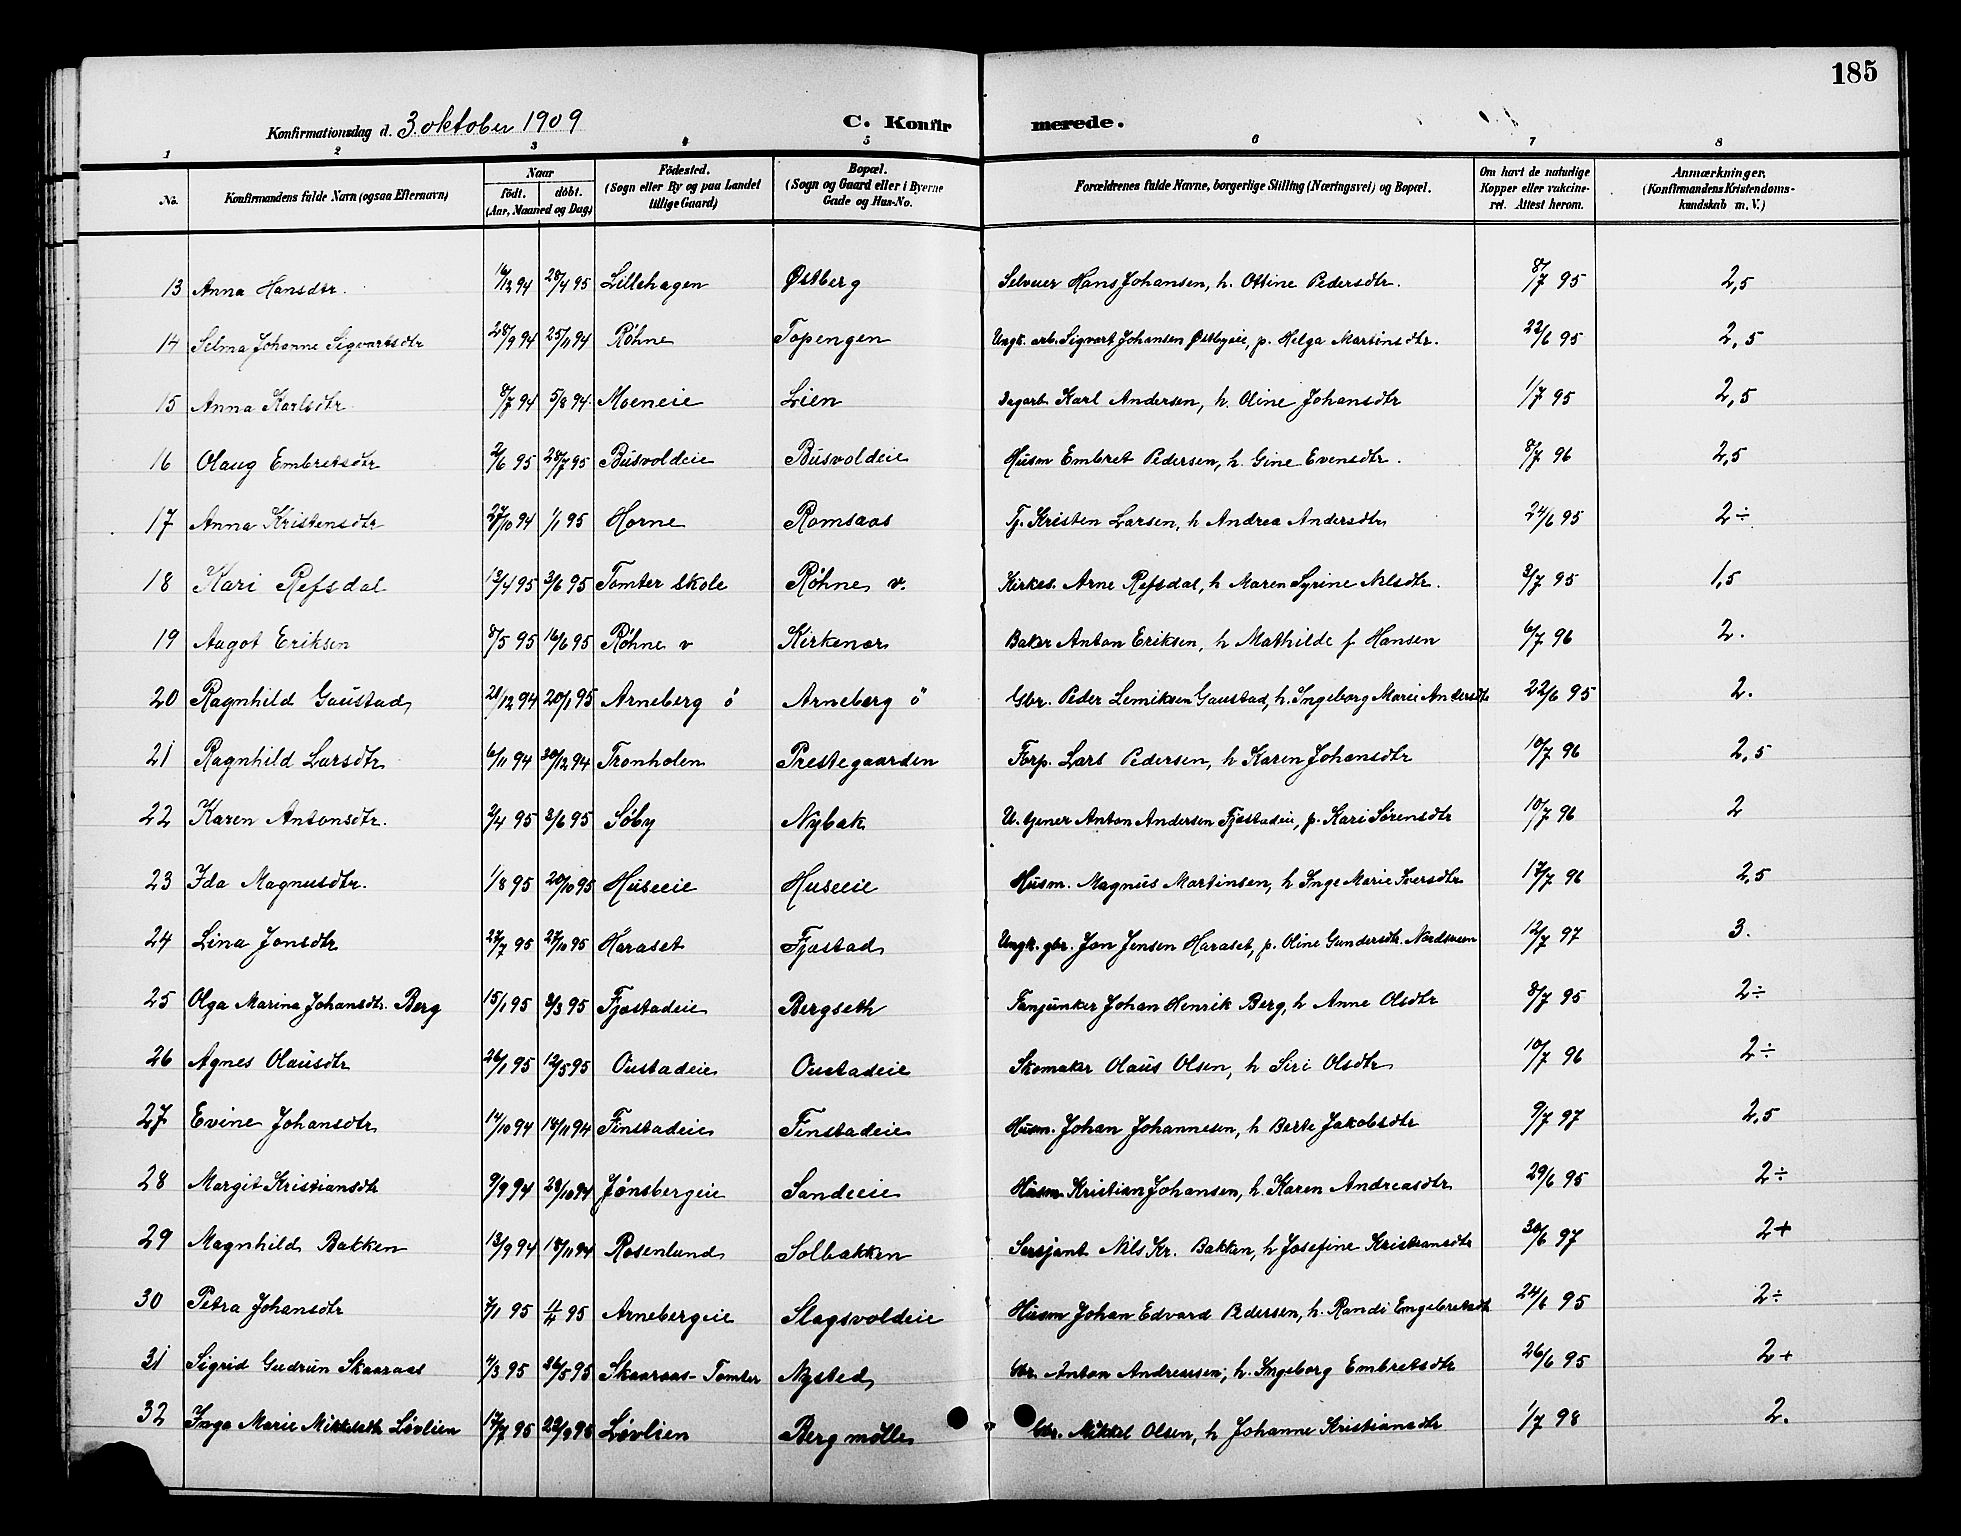 185
Konfirmationsdag d. 3. oktober 1909 C. Konfirmerede.
1 2 3 4 5 6 7 8
No. Konfirmandens fulde Navn (ogsaa Efternavn) Naar födt. döbt. (Aar, Maaned og Dag) Födested. (Sogn eller By og paa Landet tillige Gaard) Bopæl. (Sogn og Gaard eller i Byerne Gade og Hus-No. Forældrenes fulde Navne, borgerlige Stilling (Næringsvei) og Bopæl. Om havt de naturlige Kopper eller vakcineret. Attest herom. Anmærkninger. (Konfirmandens Kristendomskundskab m. V.)
13 Anna Hansdtr. 16/12 94 28/4 95 Lillehagen Østberg Selveier Hans Johansen, h. Ottine Pedersdtr. 8/7 95 2,5
14 Selma Johanne Sigvartsdtr 28/9 94 25/11 94 Røhne Topengen Ungk. arb. Sigvart Johansen Østbyeie, p. Helga Martinsdtr. 22/6 95 2,5
15 Anna Karlsdtr 8/7 94 5/8 94 Moeneie Lien Dagarb. Karl Andersen, h. Oline Johansdtr 1/7 95 2,5
16 Olaug Embretsdtr 2/6 95 28/7 95 Busvoldeie Busvoldeie Husm Embret Pedersen, h. Gine Evensdtr. 8/7 96 2,5
17 Anna Kristensdtr 27/10 94 1/1 95 Horne Romsaas Tj. Kristen Larsen, h Andrea Andersdtr 24/6 95 2÷
18 Kari Refsdal 13/4 95 3/6 95 Tomter skole Røhne v. Kirkes. Arne Refsdal, h Maren Syrine Nilsdtr. 3/7 95 1,5
19 Aagot Eriksen 8/5 95 16/6 95 Røhne v Kirkenær Baker Anton Eriksen, h Mathilde f Hansen 6/7 96 2.
20 Ragnhild Gaustad 21/12 94 20/1 95 Arneberg ö Arneberg ö Gbr. Peder Lemiksen Gaustad, h. Ingeborg Marie Andersdtr 22/6 95 2.
21 Ragnhild Larsdtr 6/11 94 30/12 94 Tronholen Prestegaarden Forp. Lars Pedersen, h Karen Johansdtr 10/7 96 2,5
22 Karen Antonsdtr. 2/4 95 3/6 95 Søby Nybak U. tjener Anton Andersen Fjæstadeie, p. Kari Sørensdtr 10/7 96 2
23 Ida Magnusdtr. 1/8 95 20/10 95 Huseeie Huseeie Husm. Magnus Martinsen, h Inge Marie Iversdtr 17/7 96 2,5
24 Lina Jonsdtr 27/7 95 27/10 95 Haraset Fjæstad Ungk. gbr. Jon Jensen Haraset, p. Oline Gundersdtr. Nordsveen 12/7 97 3.
25 Olga Marina Johansdtr. Berg 15/1 95 3/3 95 Fjæstadeie Bergseth Fanjunker Johan Henrik Berg, h Anne Olsdtr 8/7 95 2÷
26 Agnes Olausdtr 26/1 95 12/5 95 Oustadeie Oustadeie Skomaker Olaus Olsen, h Siri Olsdtr 10/7 96 2÷
27 Evine Johansdtr 14/10 94 18/11 94 Finstadeie Finstadeie Husm. Johan Johannesen, h Berte Jakobsdtr 9/7 97 2,5
28 Margit Kristiansdtr 9/9 94 28/10 94 Jønsbergeie Sandeeie Husm. Kristian Johansen, h. Karen Andreasdtr 29/6 95 2÷
29 Magnhild Bakken 13/9 94 18/11 94 Rosenlund Solbakken Sersjant Nils Kr. Bakken, h Josefine Kristiansdtr 30/6 97 2+
30 Petra Johansdtr 7/1 95 4/4 95 Arnebergeie Slagsvoldeie Husm Johan Edvard Pedersen, h. Randi Engebretsdtr 24/6 95 2÷
31 Sigrid Gudrun Skaaraas 4/3 95 26/5 95 Skaaraas-Tomter Nysted Gbr. Anton Andreassen, h. Ingeborg Embretsdtr 26/6 95 2+
32 Inga Marie Mikkelsdtr Løvlien 17/7 95 22/9 95 Løvlien Berg mølle Gbr. Mikkel Olsen, h Johanne Kristiansdtr 1/7 98 2.